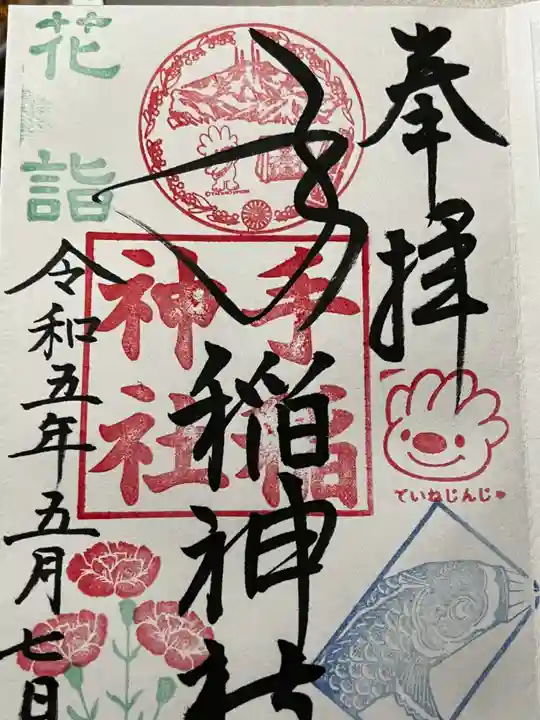 奉拝
手稲神社
手稲
神社
花詣
令和五年五月七日
ていねじんじゃ